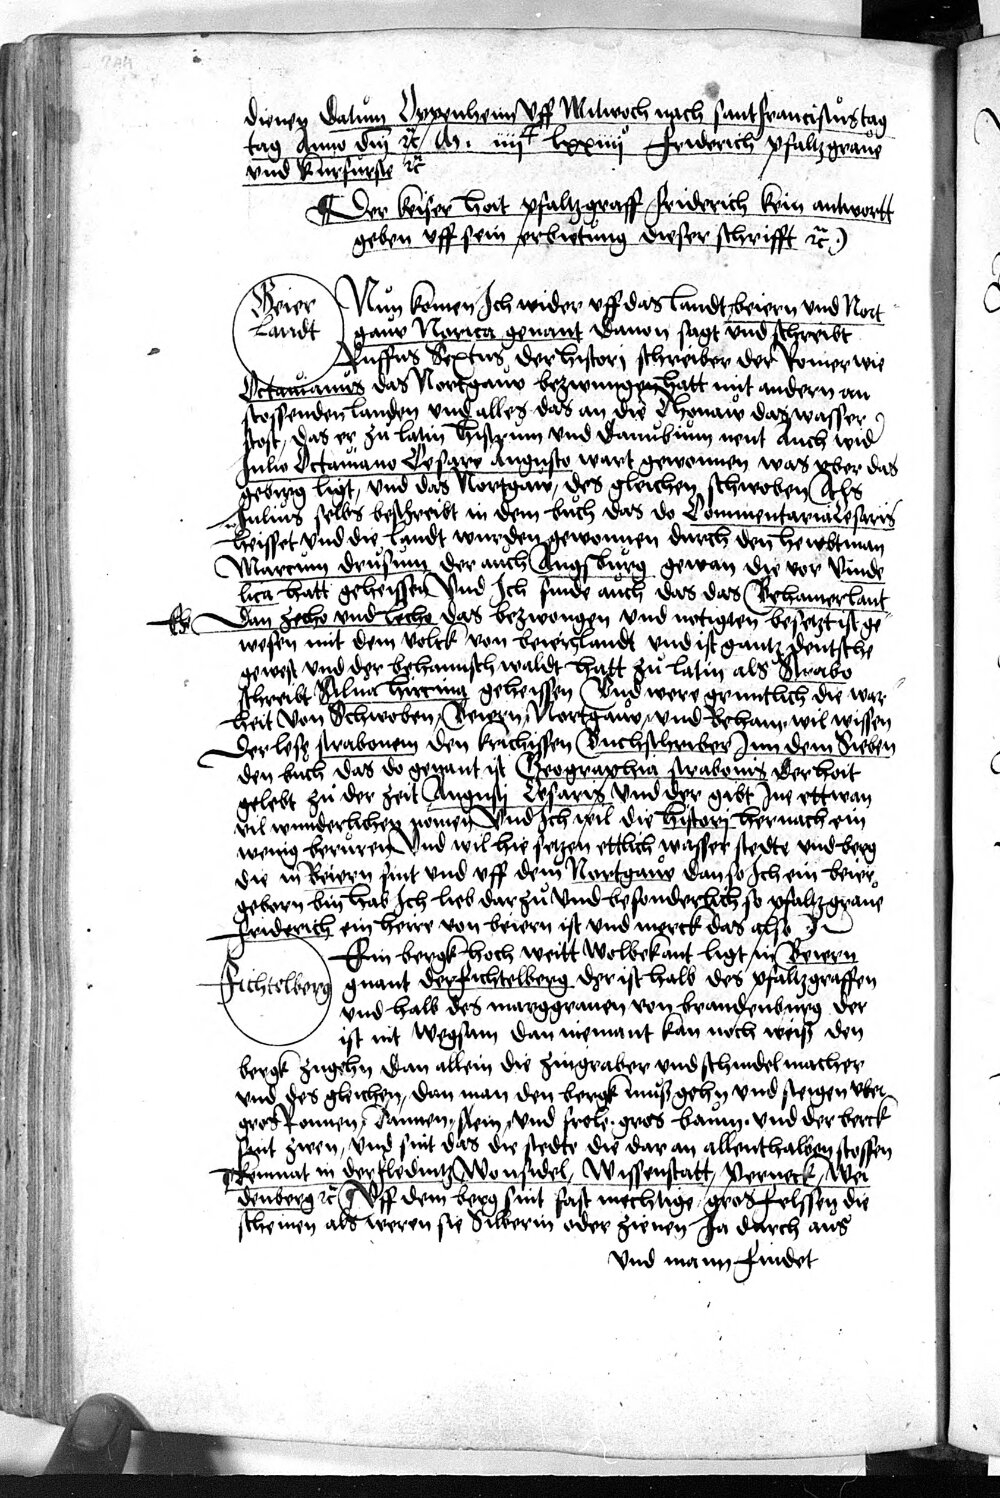 dienen Datum Oppenheim Uff Mitwoch nach sant Francisius tag
tag Anno dm̄ rc̄ M. iiii⁴ lxxiiii° Friderich pfaltzgraue
vnd kurfurste rc̄
Der keiser hoit pfaltzgraff Friderich kein antwortt
geben vff sein erbietung dieser schrifft rc̄.
Beier
Landt
Nun komen Ich wider vff das landt beiern vnd Nort
gauw Norica genant Dauon sagt vnd schreibt
Ruffus Sextus der histori schreiber der Romer wie
Octauianus das Nortgauw bezwungen hatt mit andern an
stossenden landen vnd alles das an die Thonaw das wasser
stost, das er zu latin Histrum vnd Danubium nent Auch wid
Julio Octauiano Cesare Augusto wart gewonnen was vber das
gebirg ligt, vnd das Nortgaw, des gleichen schwoben Als
Julius selbs beschreibt in dem buch das do Commentaria Cesaris
heisset vnd die Landt wurden gewonnen durch den hewbtman
Marcum drusum der auch Augsburg gewan die vor Vinde
lica hatt geheissen Vnd Ich finde auch das das Behamer lant
dan zecho vnd lecho das bezwongen vnd notigten besetzt ist ge
wesen mit dem volck von beierlandt vnd ist gantz deutsche
gewest vnd der behamisch waldt hatt zu latin als Strabo
schreibt Silua hircina geheissen Vnd were gruntlich die war
heit von Schwoben, Beiern, Nortgauw, vnd Beham wil wissen
Der lese strabonem den krichissen Buchschriber Inn dem Sieben
den buch das do genant ist Geographia strabonis der hoit
gelebt zu der zeit Augusti Cesaris vnd der gibt Ine ettwan
vil wunderlichen nomen Vnd Ich wil die histori hernach ein
wenig beruren Vnd wil hie setzen ettlich wasser stedte vnd berg
die in Beiern sint vnd vff dem Nortgauw dan so Ich ein beier
geborn bin hab Ich lieb dar zu vnd besonderlich so pfaltzgraue
Friderich ein heire von beiern ist vnd merck das also
Fichtelberg
Ein bergk hoch weitt wolbekant ligt in Beiern
gnant der fichtelberg der ist halb des pfaltzgraffen
vnd halb des marggrauen von brandenburg der
ist nit wegsam dan niemant kan noch weiß den
bergk zugehn dan allein die zingraber vnd schindel macher
vnd des gleichen, dan man den bergk muß gehn vnd steigen vber
gros Ronnen, Dannen, stein, vnd gros baum. vnd der berck
sint zwen, vnd sint das die stedte die dar an allenthalben stossen
kemnat in der Wonsidel, Wissenstatt, Perneck, Wei
denberg rc̄ Vff dem berg sint fast mechtige, gros felssen die
scheinen als weren sie Silberin oder zienen Ja durch aus
vnd mann findet